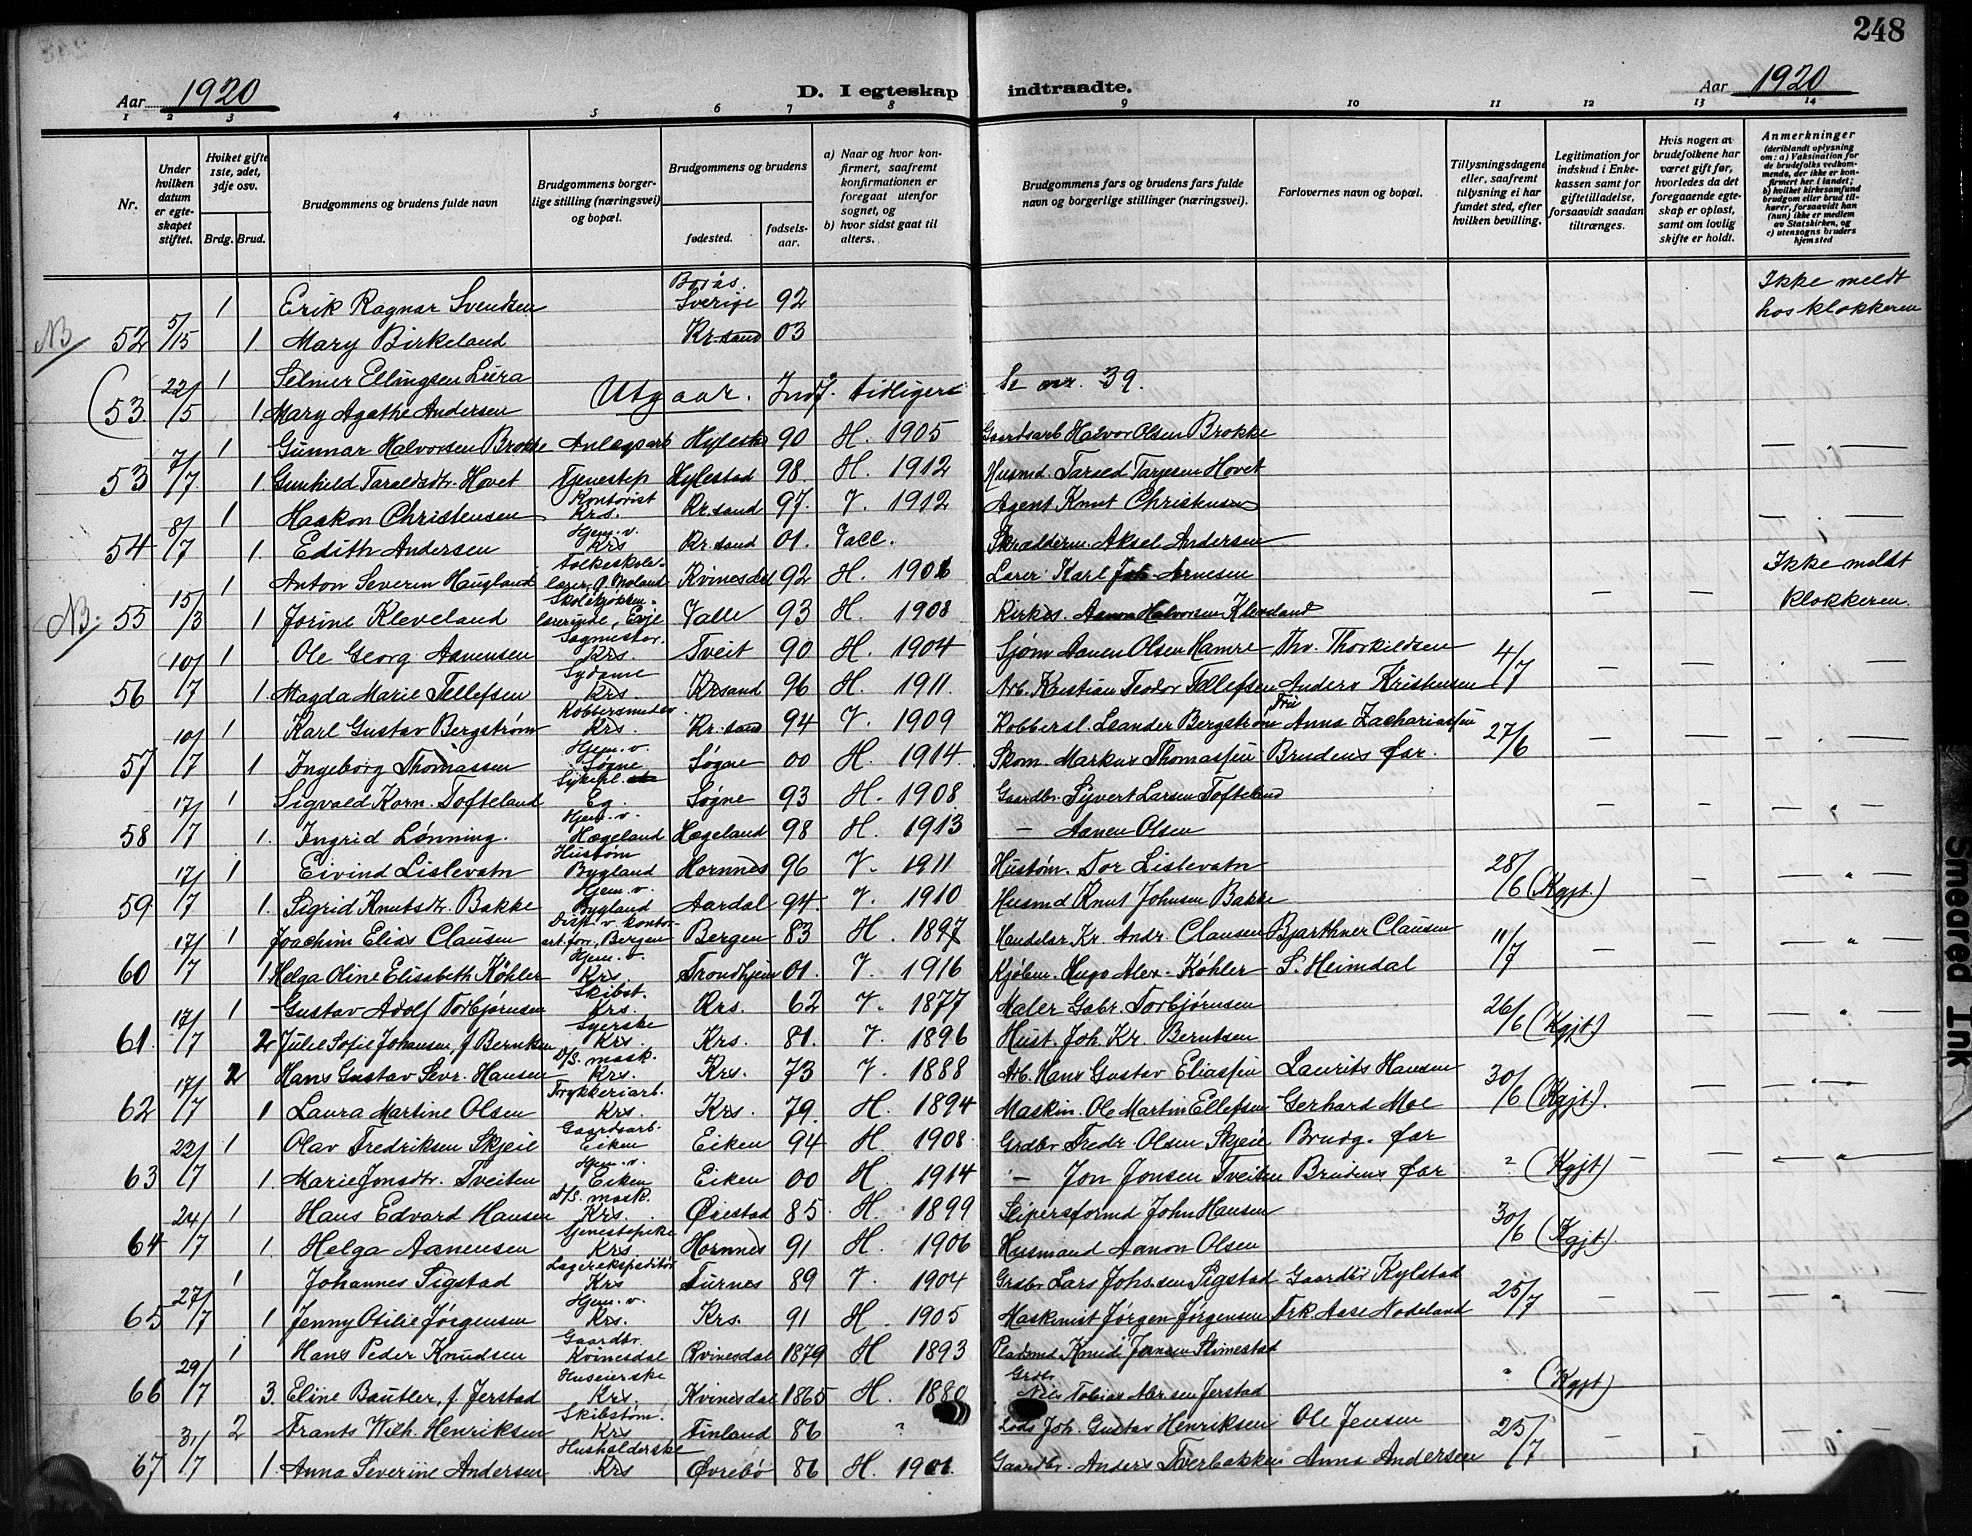 248
Aar 1920 D. I egteskap indtraadte. Aar 1920
1 2 3 4 5 6 7 8 9 10 11 12 13 14
Nr.
Under hvilken datum er egteskapet stiftet.
Hvilket gifte 1ste, 2det, 3dje osv.
Brdg. Brud.
Brudgommens og brudens fulde navn
Brudgommens borgerlige stilling (næringsvei) og bopæl.
Brudgommens og brudens
fødested. fødselsaar.
a) Naar og hvor konfirmert, saafremt konfirmationen er foregaat utenfor sognet, og
b) hvor sidst gaat til alters.
Brudgommens fars og brudens fars fulde navn og borgerlige stillinger (næringsvei).
Forlovernes navn og bopæl.
Tillysningsdagene eller, saafremt tillysning ei har fundet sted, efter hvilken bevilling.
Legitimation for indskud i Enkekassen samt for giftetilladelse, forsaavidt saadan tiltrænges.
Hvis nogen av brudefolkene har været gift før, hvorledes da det foregaaende egteskap er opløst, samt om lovlig skifte er holdt.
Anmerkninger (deriblandt oplysning om: a) Vaksination for de brudefolks vedkommende, der ikke er konfirmert her i landet; b) hvilket kirkesamfund brudgom eller brud tilhører, forsaavidt han (hun) ikke er medlem av Statskirken, og c) utensogns bruders hjemsted
1 Erik Ragnar Svendsen Borås. Sverige 92 Ikke meldt hos klokkeren
NB 52 5/15 1. Mary Birkeland Kr.sand 03
1 Selmer Ellingsen Lura Utgaar. Indf. tidligere Se nr. 39.
(53. 22/5 1 Mary Agathe Andersen
1 Gunnar Halvorsen Brokke Anlægsarb Hylestad 90 H. 1905 Gaardsarb Halvor Olsen Brokke
53 7/7 1. Gunhild Taraldsdtr. Hovet Tjenestep Hylestad 98. H. 1912 Husmd. Tarald Tarjesen Hovet
1 Haakon Christensen Kontorist Krs. Kr.sand 97. V. 1912 Agent Knut Christensen
54 8/7 1. Edith Andersen Hjem.v. Krs Kr.sand 01. Vacc. Aksel Andersen
1 Anton Severin Haugland Folkeskolelærer, Kvinesdal 92 H. 1906 Lærer Karl Arnesen Ikke meldt
NB. 55 15/3 1 Jorine Kleveland Skolekjøkkenlærerinde, Evje Valle 93 H. 1908 Kirkes. Aanon Halvorsen Kleveland klokkeren.
1 Ole Georg Aanensen Sagmester. Krs. Tveit 90 H. 1904 Sjøm Aanen Olsen Hamre Thv. Thorkildsen 4/7
56 10/7 1. Magda Marie Tellefsen Sydame Krs. Krsand 96 H. 1911. Arb. Kristian Teodor Tellefsen Anders Kristensen
1 Karl Gustav Bergstrøm Kobbersmedsv. Krs. Kr.sand 94 V. 1909 Kobbersl. Leander Bergstrøm Frü Anna Zachariassen 27/6
57 10/7 1 Ingeborg Thomassen Hjem.v. Søgne Søgne 00 H. 1914. Skom. Markus Thomassen Brudens far.
1 Sigvald Korn. Tofteland Sykepl. Eg. Søgne 93 H. 1908 Gaardbr. Syvert Larsen Tofteland
58 17/7 1. Ingrid Lønning. Hjem.v. Hægeland Hægeland 98 H. 1913 — Aanen Olsen
1 Eivind Lislevatn Hustøm Bygland Hornnes 96 V. 1911 Hustøm. Tor Lislevatn 28/6 (Kgjt.)
59 17/7 1. Sigrid Knutsdtr. Bakke Hjem.v. Bygland Aardal 94. V. 1910 Husmd Knut Johnsen Bakke
1 Joachim Elias Clausen Bergen Bergen 83 H. 1897 Handelsr. Kr. Andr. Clausen Bjarthner Clausen 11/7
60 17/7 1 Helga Oline Elisabeth Köhler Hjem.v. Krs Trondhjem 01. V. 1916 Kjøbm. Hugo Alex. Köhler S. Heimdal
1 Gustav Adolf Torbjørnsen Skibst. Krs. Krs. 62 V. 1877 Maler Gabr. Torbjørnsen 26/6 (Kgjt)
61. 17/7 2 Julie Sofie Johansen, f Berntsen Syerske Krs. Krs. 81. V. 1896 Hust. Joh. Kr. Berntsen
2 Hans Gustav Sevr. Hansen D/S. mask. Krs. Krs. 73 V. 1888 Arb. Hans Gustav Eliassen Laurits Hansen 30/6 (Kgjt).
62 17/7 1 Laura Martine Olsen Trykkeriarb. Krs. Krs. 79. H. 1894 Maskin. Ole Martin Ellefsen Gerhard Moe
1 Olav Fredriksen Skjeie Gaardsarb. Eiken Eiken 94 H. 1908 Grdbr. Fredr. Olsen Skjeie Brudg. far
63 22/7 1. Marie Jonsdtr. Tveiten Hjem.v. Eiken Eiken 00 H. 1914 — Jon Jonsen Tveiten Brudens far (Kgjt)
1 Hans Edvard Hansen D/S. mask. Krs. Øiestad 85. H. 1899 Slipersformd John Hansen 30/6 (Kgjt).
64 24/7 1. Helga Aanensen Tjenestepike Krs. Hornnes 91 H. 1906 Husmand Aanon Olsen
1 Johannes Sigstad Lagerekspeditør Krs Furnes 89 V. 1904 Grdbr Lars Johs.sen Sigstad Gaardbr Kylstad 25/7
65 27/7 1 Jenny Otilie Jørgensen Hjem.v. Krs. Krs. 91 H. 1905 Maskinist Jørgen Jørgensen Frk. Aase Nodeland
1 Hans Peder Knudsen Gaardbr. Kvinesdal Kvinesdal 1879 H 1893 Pladsmd Knud Jensen Slimestad
66 29/7 3. Eline Bautler, f. Jerstad Huseierske Krs. Kvinesdal 1865 H. 1880 Grdbr. Nils Tobias Abr.sen Jerstad (Kgjt)
2 Frants Wilh. Henriksen Skibstøm. Krs Finland 86 Lods Joh. Gustav Henriksen Ole Jensen 25/7
67 31/7 1. Anna Severine Andersen Husholderske Krs Øvrebø 86 H. 1901. Gaardbr. Anders Tverbakken Anna Andersen
Smeared Ink